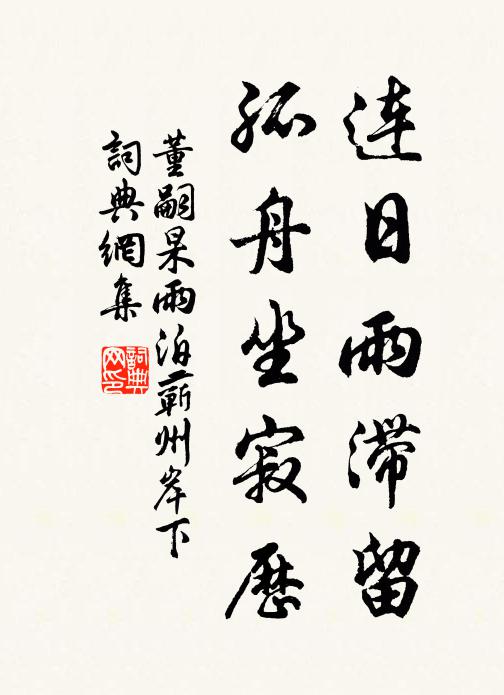 連日雨滯留
孤舟坐寂歷
董嗣杲雨泊蘄州岸下
詞典網集
詞典网印